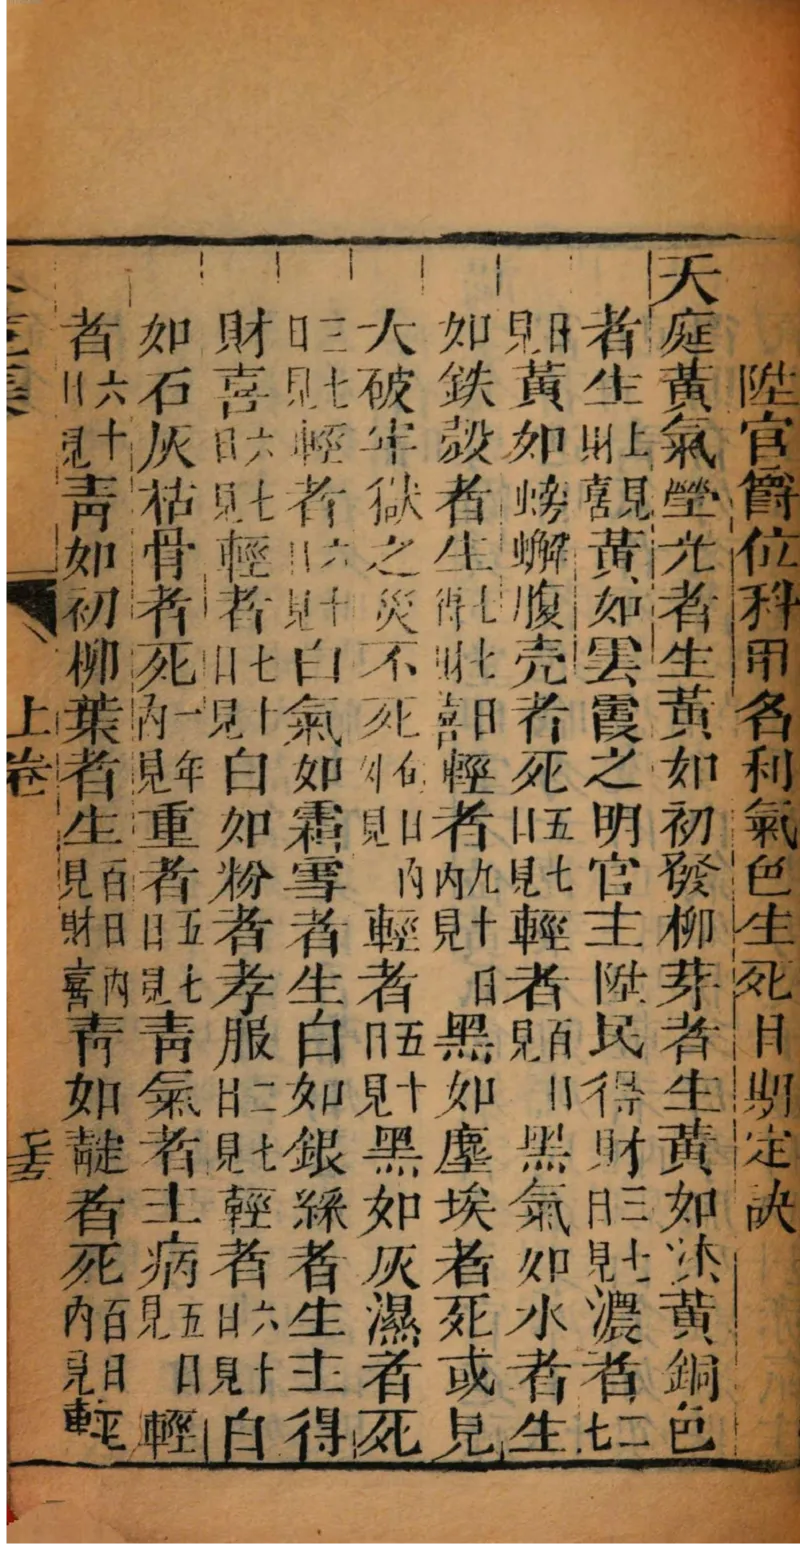 陞官爵位科甲名利氣色生死日期定訣
天庭黃氣瑩光者生黃如初發柳芽者生黃如黃銅色
者生上見財喜黃如雲霞之明官主陞民得財三七日見濃者二七
日見黃如螃蠏腹壳者死五七日見輕者百日見黑氣如水者生
如鉄殼者生七七日得財喜輕者九十日內見黑如塵埃者死或見
大破牢獄之災不死日內見輕者五十日見黑如灰濕者死
三七日見輕者六十日見白氣如霜雪者生白如銀絲者生主得
財喜六七日見輕者七十日見白如粉者孝服二七日見輕者六十日見白
如石灰枯骨者死一年內見重者五七日見青氣者主病五日見輕
者六十日見青如初柳葉者生百日內見財喜青如靛者死百日內見輕
上卷